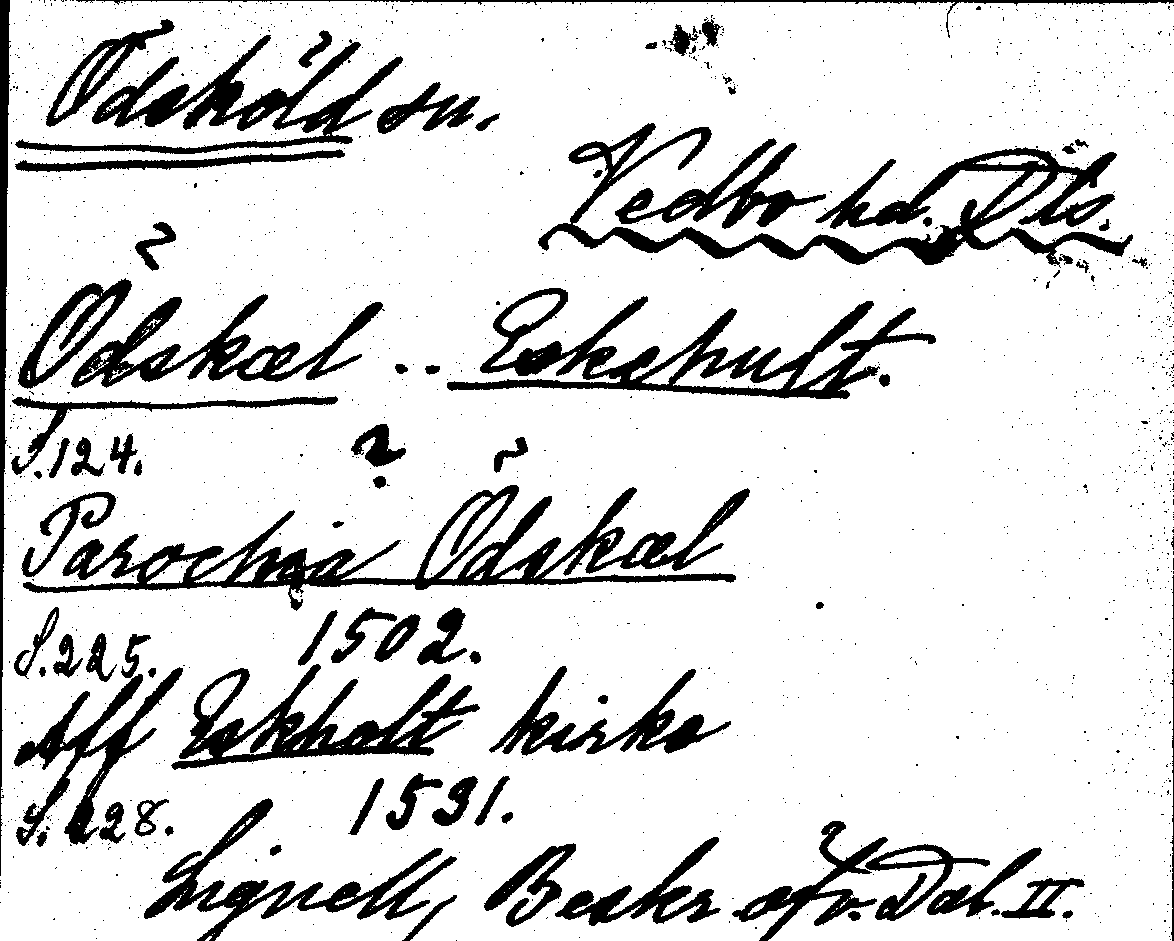 Ödsköld sn.
Vedbo hd. Dls.
Ödskæl .. Eskehult.
S.124.
?
Parochia Ödskæl
S.225. 1502.
Aff Eskholt kirke
S. 228. 1531.
Lignell, Beskr. öfv. Dal. II.